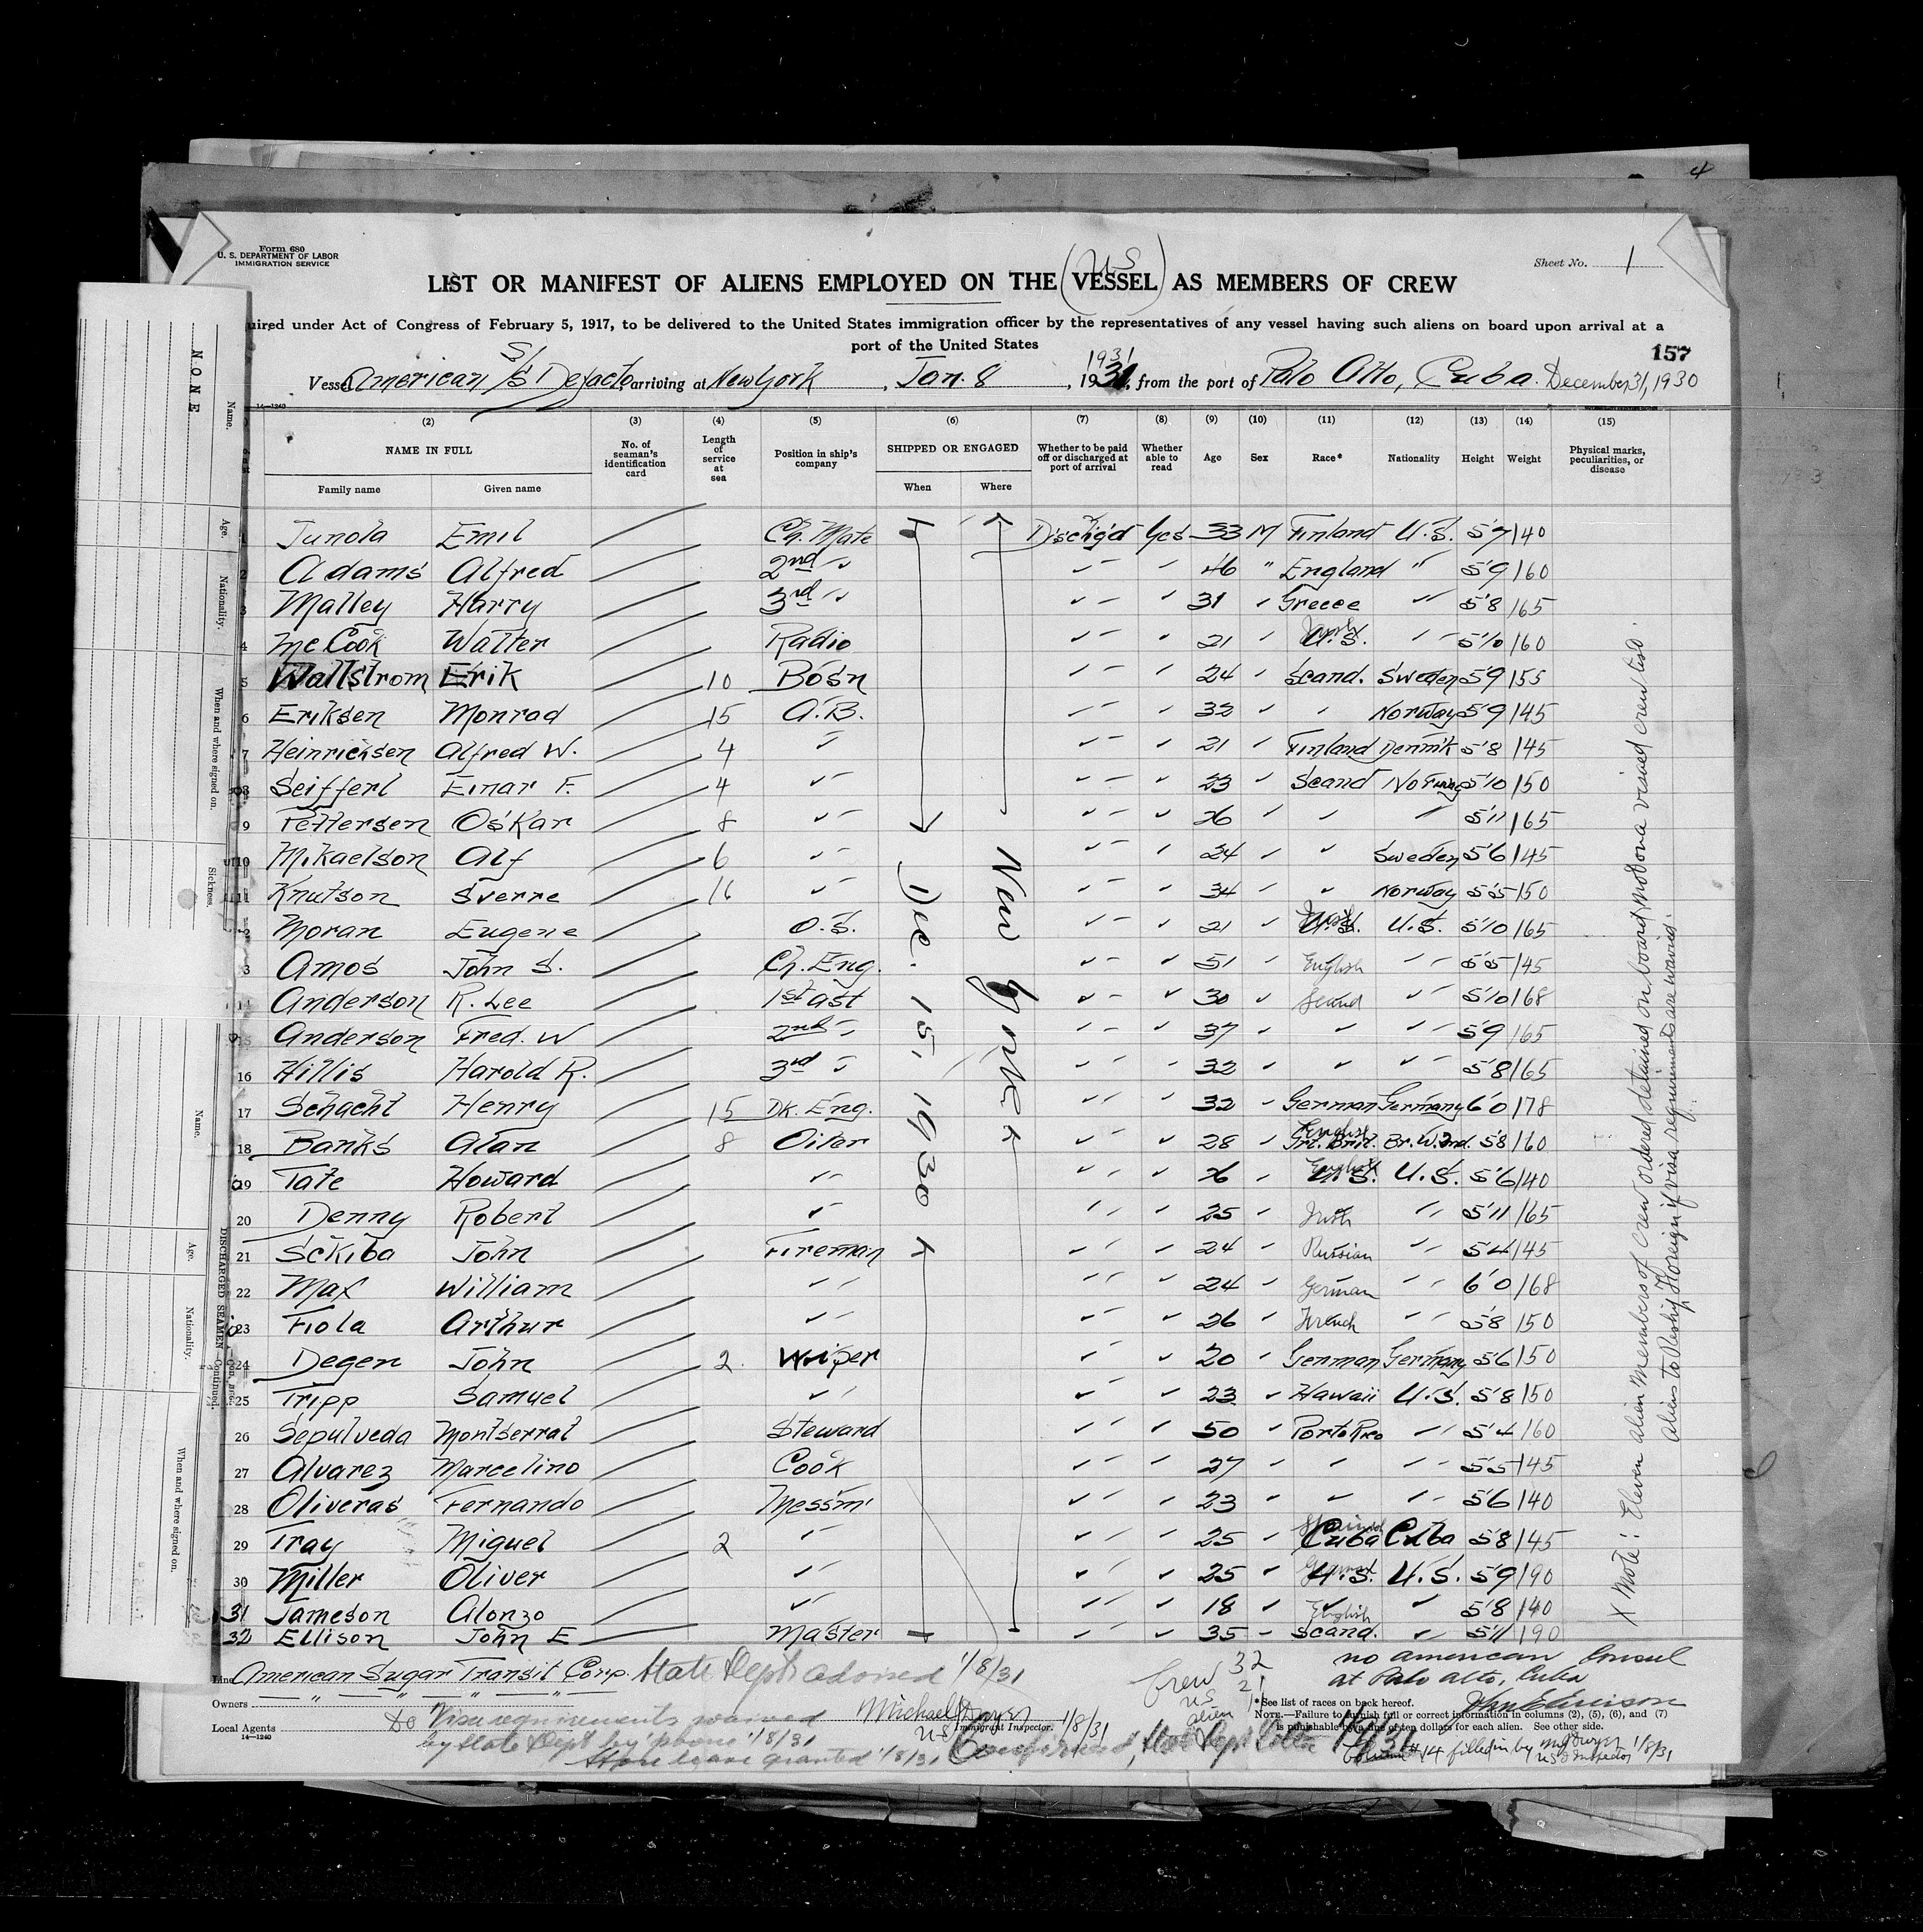 4
Form 680
U. S. DEPARTMENT OF LABOR
IMMIGRATION SERVICE
Sheet No. 1
LIST OR MANIFEST OF ALIENS EMPLOYED ON THE (VESSEL) AS MEMBERS OF CREW
US
uired under Act of Congress of February 5, 1917, to be delivered to the United States immigration officer by the representatives of any vessel having such aliens on board upon arrival at a
port of the United States
157
Vessel American S/S Defacto, arriving at New York, Jan. 8, 1931, from the port of Palo Alto, Cuba. December 31, 1930
1931
14—1240
(2) (3) (4) (5) (6) (7) (8) (9) (10) (11) (12) (13) (14) (15)
NAME IN FULL No. of seaman's identification card Length of service at sea Position in ship's company SHIPPED OR ENGAGED Whether to be paid off or discharged at port of arrival Whether able to read Age Sex Race* Nationality Height Weight Physical marks, peculiarities, or disease
Family name Given name When Where
Junola Emil Ch. Mate Disch'g'd Yes 33 M Finland U.S. 5'7 140
2 Adams Alfred 2nd " 46 " England " 5'9 160
3 Malley Harry 3rd " 31 Greece 5'8 165
4 McCook Walter Radio 21 U.S. 5'10 160
5 Wallstrom Erik 10 Bosn 24 Scand. Sweden 5'9 155
6 Eriksen Monrad 15 A.B. 32 Norway 5'9 145
7 Heinrichsen Alfred W. 4 21 Finland Denm'k 5'8 145
8 Seifferl Einar F. 4 23 Scand Norway 5'10 150
9 Pettersen Oskar 8 26 5'11 165
10 Mikaelson Alf 6 24 Sweden 5'6 145
11 Knutson Sverre 16 34 Norway 5'5 150
Moran Eugene O.S. 21 U.S. U.S. 5'10 165
3 Amos John S. Ch. Eng. 51 English 5'5 145
14 Anderson R. Lee 1st ast 30 Scand 5'10 168
15 Anderson Fred. W 2nd " 37 5'9 165
16 Hillis Harold R. 3rd " 32 5'8 165
17 Schacht Henry 15 Dk. Eng. 32 German Germany 6'0 178
18 Banks Alan 8 Oiler 28 English Grt. Brit. Br. W. Ind. 5'8 160
19 Tate Howard 26 English U.S. U.S. 5'6 140
20 Denny Robert 25 Irish 5'11 165
21 Sckiba John Fireman 24 Russian 5'4 145
22 Max William 24 German 6'0 168
23 Fiola Arthur 26 French 5'8 150
24 Degen John 2 Wiper 20 German Germany 5'6 150
25 Tripp Samuel 23 Hawaii U.S. 5'8 150
26 Sepulveda Montserrat Steward 50 Porto Rico 5'4 160
27 Alvarez Marcelino Cook 27 5'5 145
28 Oliveras Fernando Messm' 23 5'6 140
29 Tray Miguel 2 25 Spanish Cuba Cuba 5'8 145
30 Miller Oliver 25 German U.S. U.S. 5'9 190
31 Jameson Alonzo 18 English 5'8 140
32 Ellison John E Master 35 Scand. 5'11 190
Dec. 15, 1930
New York
X Note: Eleven alien members of crew ordered detained on board, no bona visaed crew list.
Aliens to Reship Foreign if visa requirements are waived.
American Sugar Transit Corp. State Dept advised 1/8/31
Owners
Local Agents
14—1240
Do Visa requirements waived
by State Dept by phone 1/8/31
Shore leave granted 1/8/31
Michael Dwyer
US Immigrant Inspector. 1/8/31
Crew 32
US 21
alien 11
no american Consul
at Palo Alto, Cuba
*See list of races on back hereof.
John E Ellison
NOTE.—Failure to furnish full or correct information in columns (2), (5), (6), and (7)
is punishable by a fine of ten dollars for each alien. See other side.
Confirmed, State Dept
Column # 14 filled in by M Dwyer 1/8/31
US Inspector
NONE
Name.
Age.
Nationality.
When and where signed on.
Sickness.
Name.
Age.
Nationality.
When and where signed on.
DISCHARGED SEAMEN—Continued.